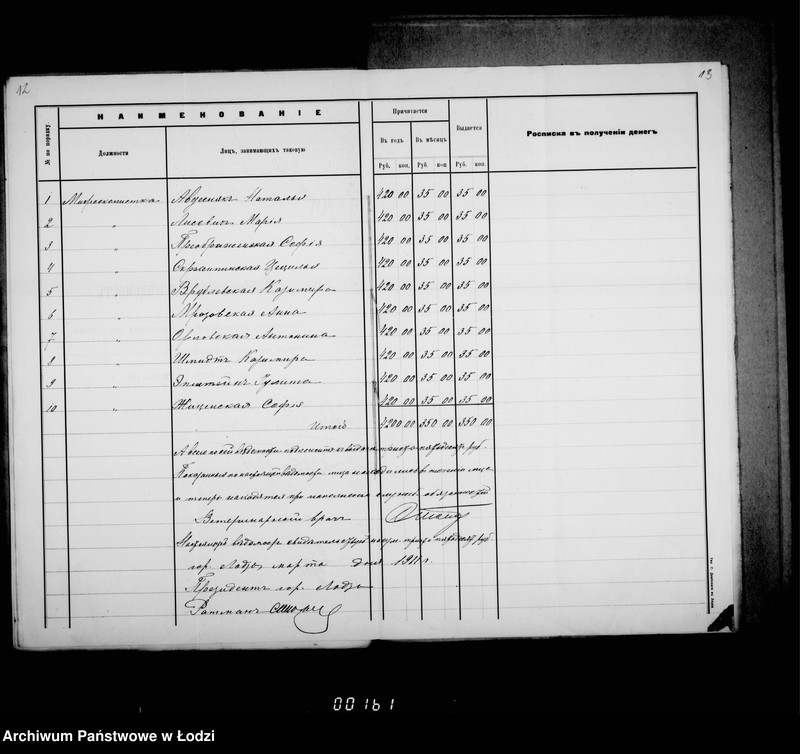 12
13
НАИМЕНОВАНІЕ
Причитается
№ по порядку.
Должности
Лицъ, занимающихъ таковую
Въ годъ
Въ мѣсяцъ
Выдается
Росписка въ полученіи денегъ
Руб. коп. Руб. коп Руб. коп.
1 Микроскопистка Наталья 420 00 35 00 35 00
2 " Лисевичъ Марія 420 00 35 00 35 00
3 " Преображенская Софія 420 00 35 00 35 00
4 " 420 00 35 00 35 00
5 " Врублевская Казимира 420 00 35 00 35 00
6 " Мрозовская Анна 420 00 35 00 35 00
7 " Орловская Антонина 420 00 35 00 35 00
8 " Шмидтъ Казимира 420 00 35 00 35 00
9 " Эпштейнъ 420 00 35 00 35 00
10 " Софія 420 00 35 00 35 00
Итого 4200 00 350 00 350 00
А всего по сей вѣдомости подлежитъ къ выдачѣ триста пятьдесятъ руб.
Показанные по настоящей вѣдомости лица находились въ теченіи
и теперь находятся при исполненіи обязанностей
Ветеринарный врачъ
Настоящую вѣдомость триста пятьдесятъ руб.
гор. Лодзь марта дня 1911 г.
Президентъ гор. Лодзи
Ратманъ
00161
Archiwum Państwowe w Łodzi